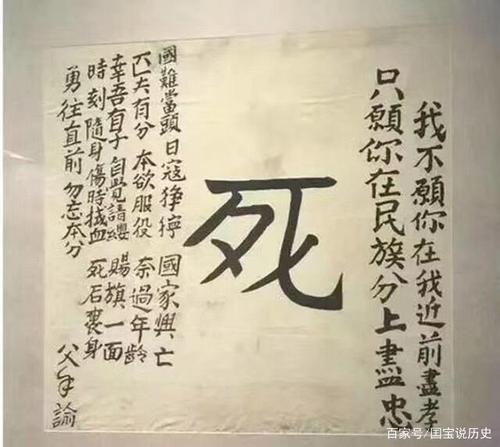 我不願你在我近前盡孝
只願你在民族分上盡忠
死
國難當頭 日寇猙獰 國家興亡
匹夫有分 本欲服役 奈過年齡
幸吾有子 自覺請纓 賜旗一面
時刻隨身 傷時拭血 死后裹身
勇往直前 勿忘本分
父手諭
百家号/国宝说历史